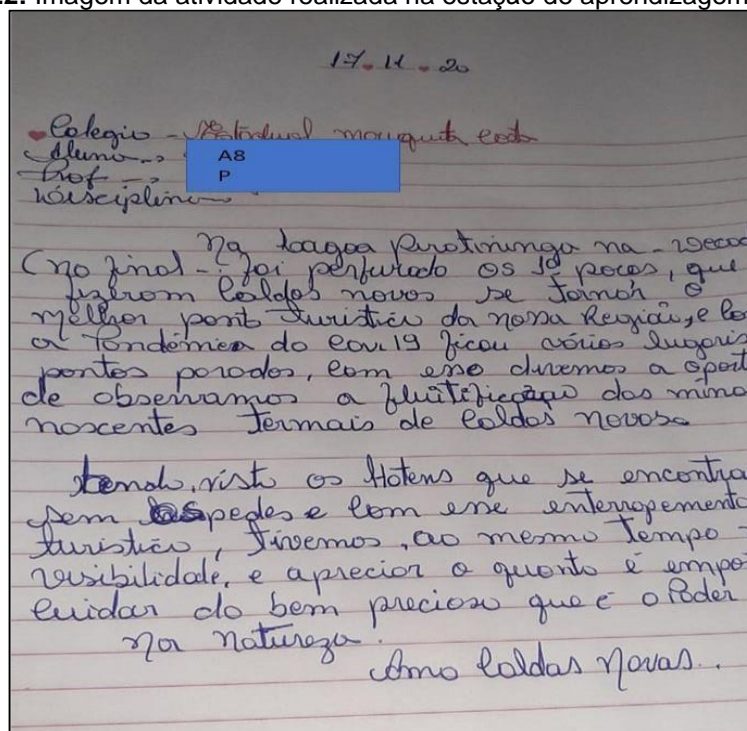 .2. Imagem da atividade realizada na estação de aprendizagem
17.11.20
Colegio - Estadual mesquita
Aluno ->
A8
Prof ->
P
Disciplina
Na Lagoa Piratininga na
(no final - foi perfurado os 1º poços, que
fizerom Caldas novas se tornar o
melhor pont turistico da nossa Região, e
a Pandemiea do cov 19 ficou vários lugaris
pontos parados, com esse
de observamos a das
nascentes Termais de Caldas novas
tendo visto os Hotens que se encontra
sem e com esse enterropemento
turistico, Tivemos, ao mesmo Tempo
visibilidade, e apreciar o quanto é
cuidar do bem precioso que é o Poder
na natureza.
Amo Caldas Novas..